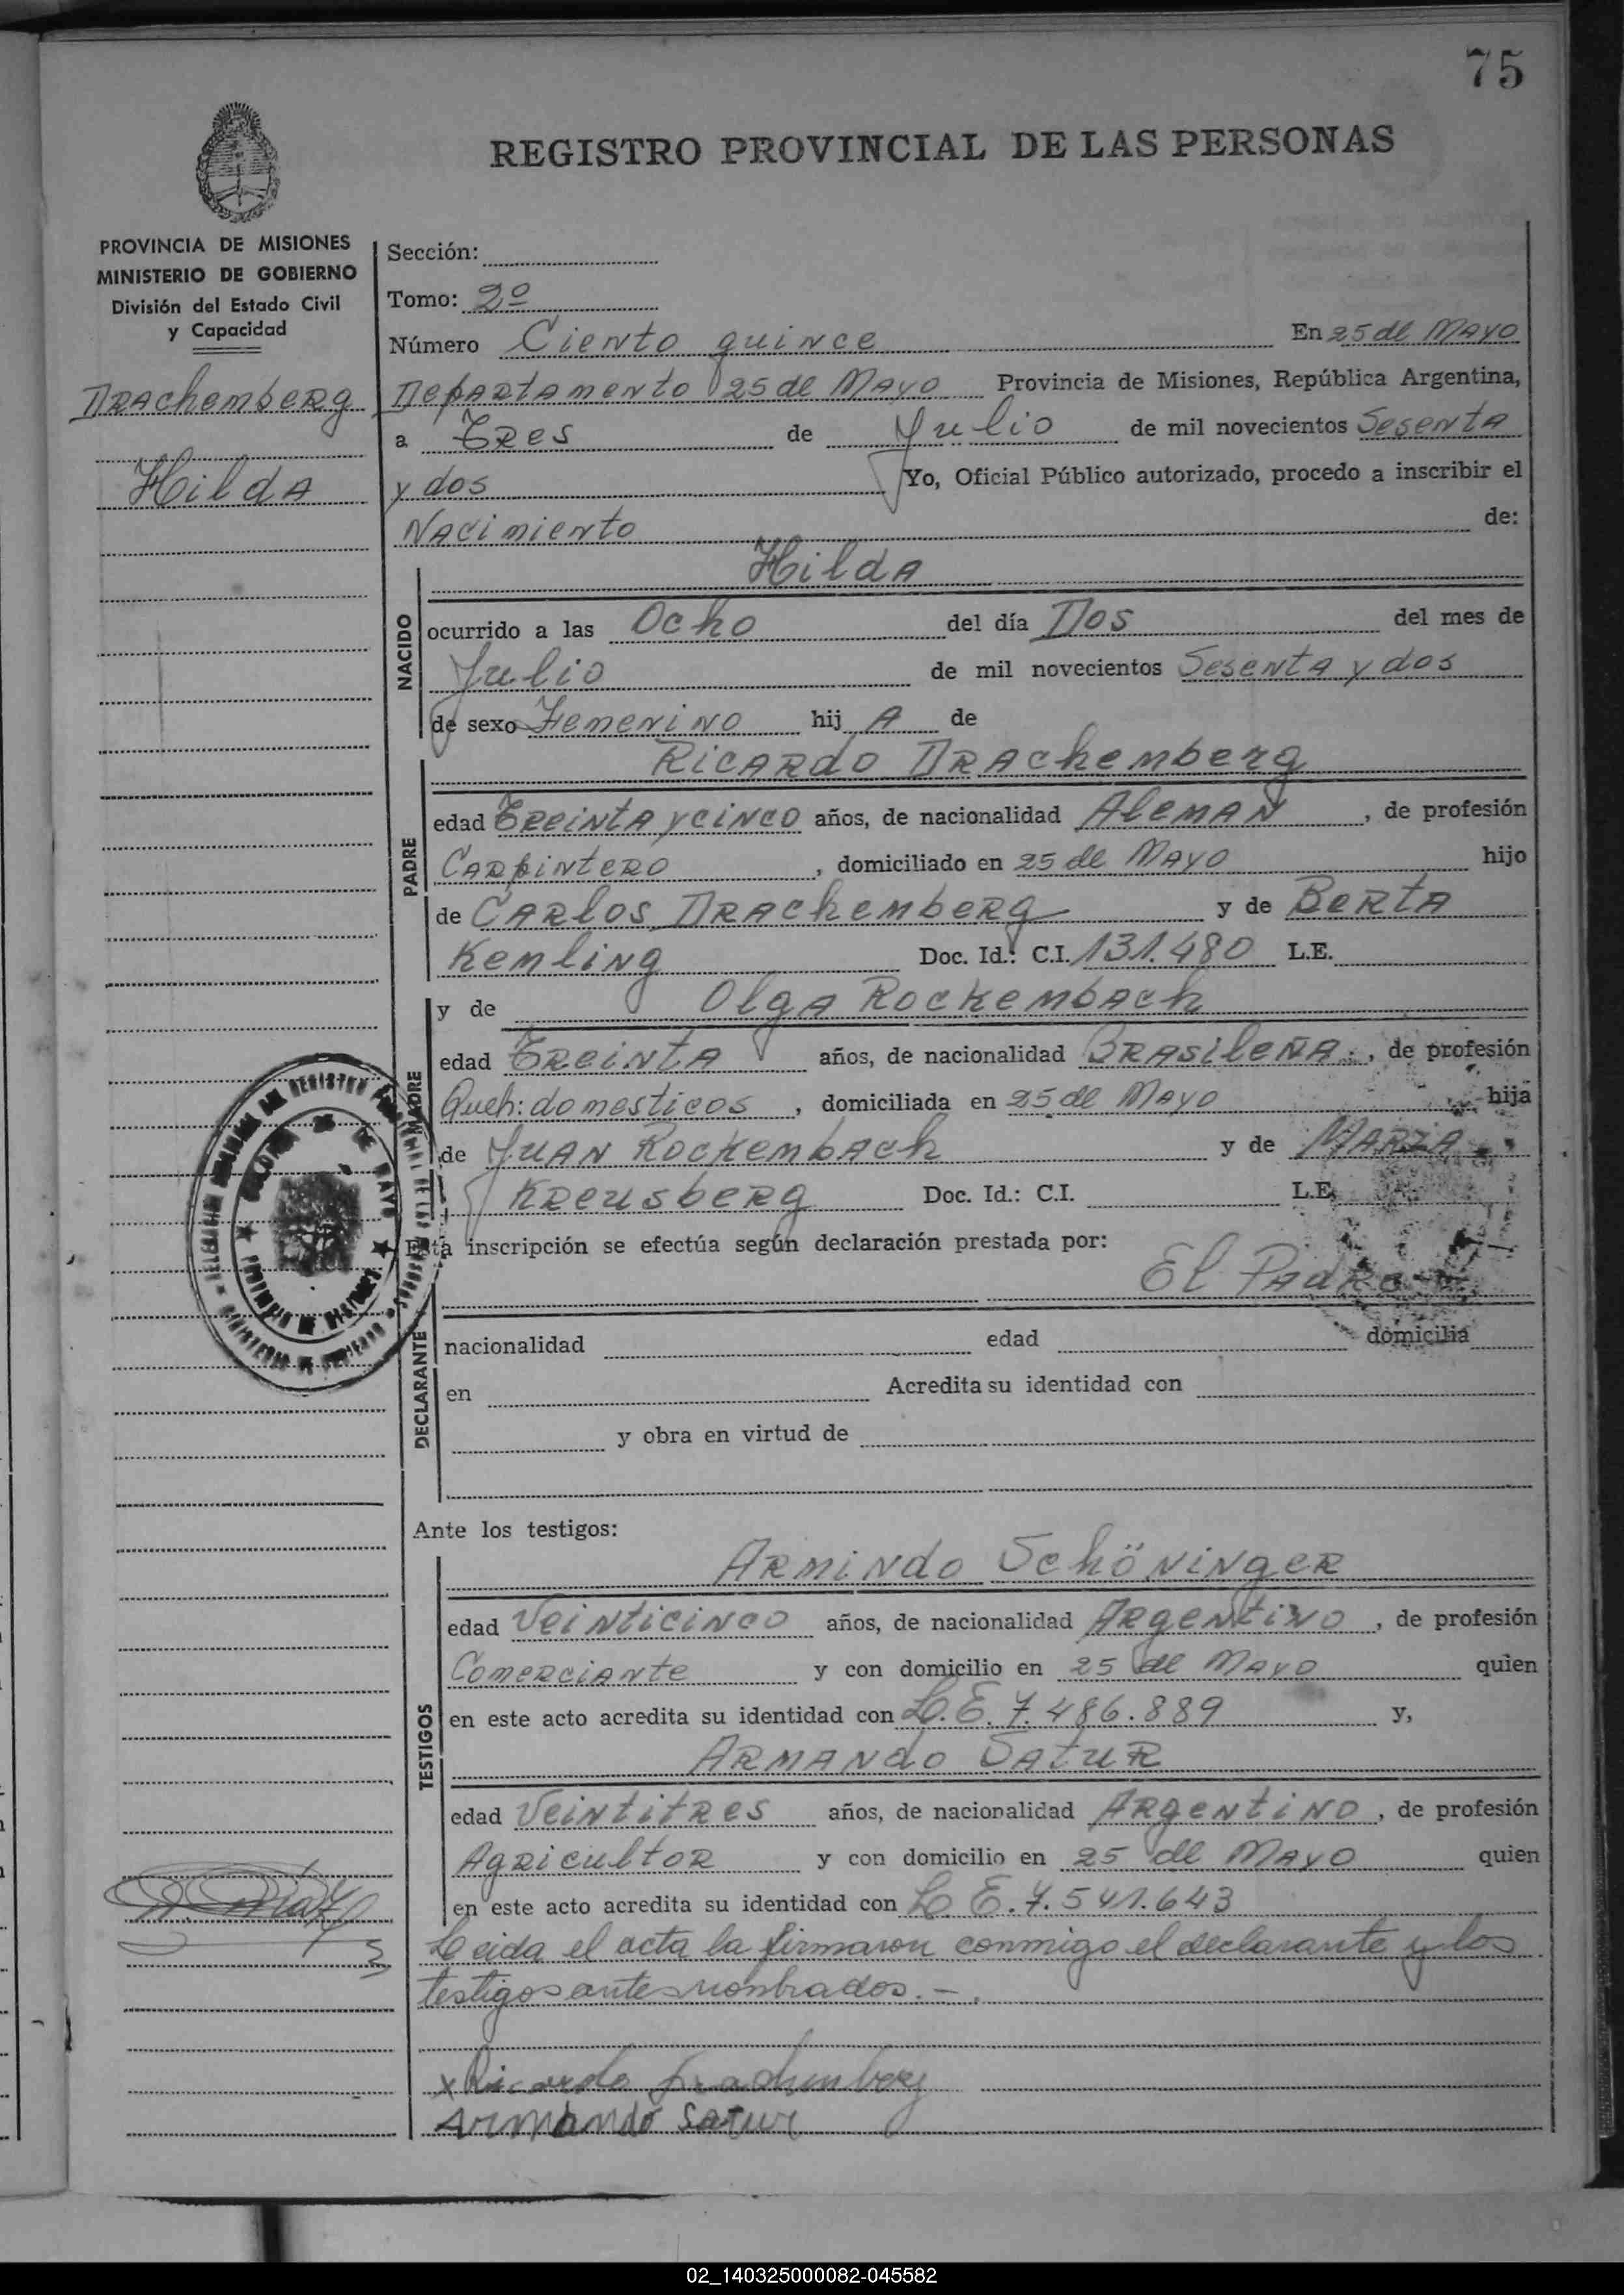 75
REGISTRO PROVINCIAL DE LAS PERSONAS
PROVINCIA DE MISIONES
MINISTERIO DE GOBIERNO
División del Estado Civil
y Capacidad
Drachemberg
Hilda
Sección:
Tomo: 2º
Número Ciento quince En 25 de Mayo
Departamento 25 de Mayo Provincia de Misiones, República Argentina,
a Tres de Julio de mil novecientos Sesenta
y dos Yo, Oficial Público autorizado, procedo a inscribir el
Nacimiento de:
Hilda
NACIDO
ocurrido a las Ocho del día Dos del mes de
Julio de mil novecientos Sesenta y dos
de sexo Femenino hij A de
Ricardo Drachemberg
PADRE
edad Treinta y cinco años, de nacionalidad Aleman, de profesión
Carpintero, domiciliado en 25 de Mayo hijo
de Carlos Drachemberg y de Berta
Kemling Doc. Id.: C.I. 131.480 L.E.
y de Olga Rockembach
MADRE
edad Treinta años, de nacionalidad Brasileña., de profesión
Queh: domesticos, domiciliada en 25 de Mayo hija
de Juan Rockembach y de Maria
Kreusberg Doc. Id.: C.I. L.E.
Esta inscripción se efectúa según declaración prestada por:
El Padre
DECLARANTE
nacionalidad edad domicilia
en Acredita su identidad con
y obra en virtud de
Ante los testigos:
Armindo Schöninger
TESTIGOS
edad Veinticinco años, de nacionalidad Argentino, de profesión
Comerciante y con domicilio en 25 de Mayo quien
en este acto acredita su identidad con L.E. 7.486.889 y,
Armando Satur
edad Veintitres años, de nacionalidad Argentino, de profesión
Agricultor y con domicilio en 25 de Mayo quien
en este acto acredita su identidad con L.E. 7.541.643
Leida el acta la firmaron conmigo el declarante y los
testigos antes nonbrados.-.
x Ricardo Drachemberg
Armando Satur
02_140325000082-045582